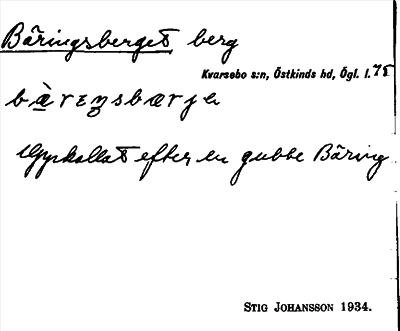 Bäringsberget berg
Kvarsebo s:n, Östkinds hd, Ögl. l. 75
Uppkallat efter en gubbe Bäring
STIG JOHANSSON 1934.